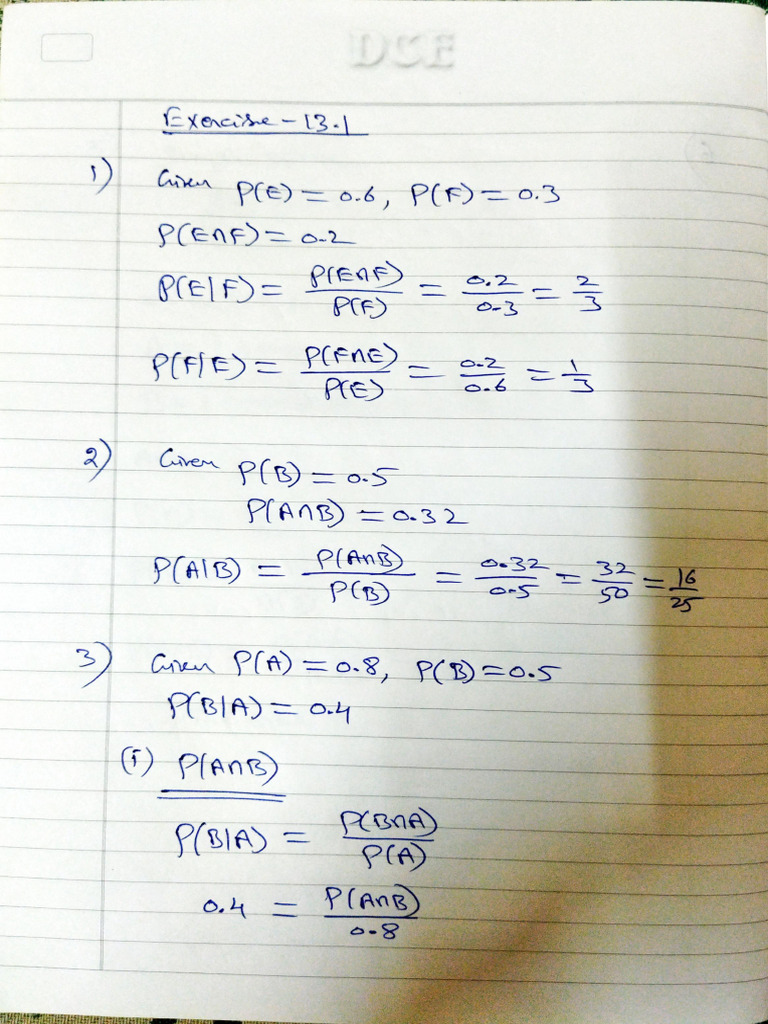 DCE
Exercise - 13.1
1) Given P(E) = 0.6, P(F) = 0.3
P(E∩F) = 0.2
P(E|F) = P(E∩F)/P(F) = 0.2/0.3 = 2/3
P(F|E) = P(F∩E)/P(E) = 0.2/0.6 = 1/3
2) Given P(B) = 0.5
P(A∩B) = 0.32
P(A|B) = P(A∩B)/P(B) = 0.32/0.5 = 32/50 = 16/25
3) Given P(A) = 0.8, P(B) = 0.5
P(B|A) = 0.4
(i) P(A∩B)
P(B|A) = P(B∩A)/P(A)
0.4 = P(A∩B)/0.8